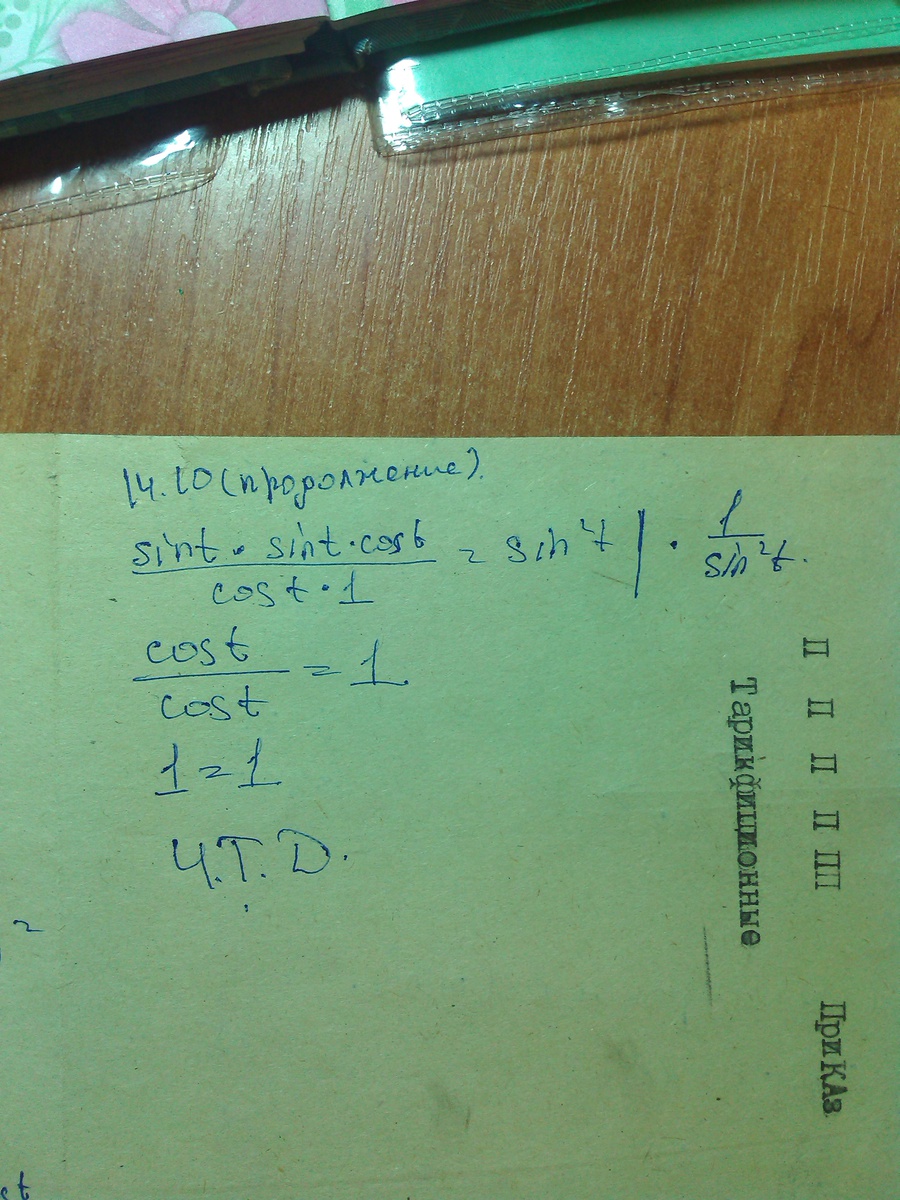 14.10 (продолжение).
sint · sint · cost / cost · 1 = sin²t | · 1 / sin²t.
cost / cost = 1
1 = 1
Ч.Т.D.
П П П П ПП ПриКАз
Тарификционные
=
st